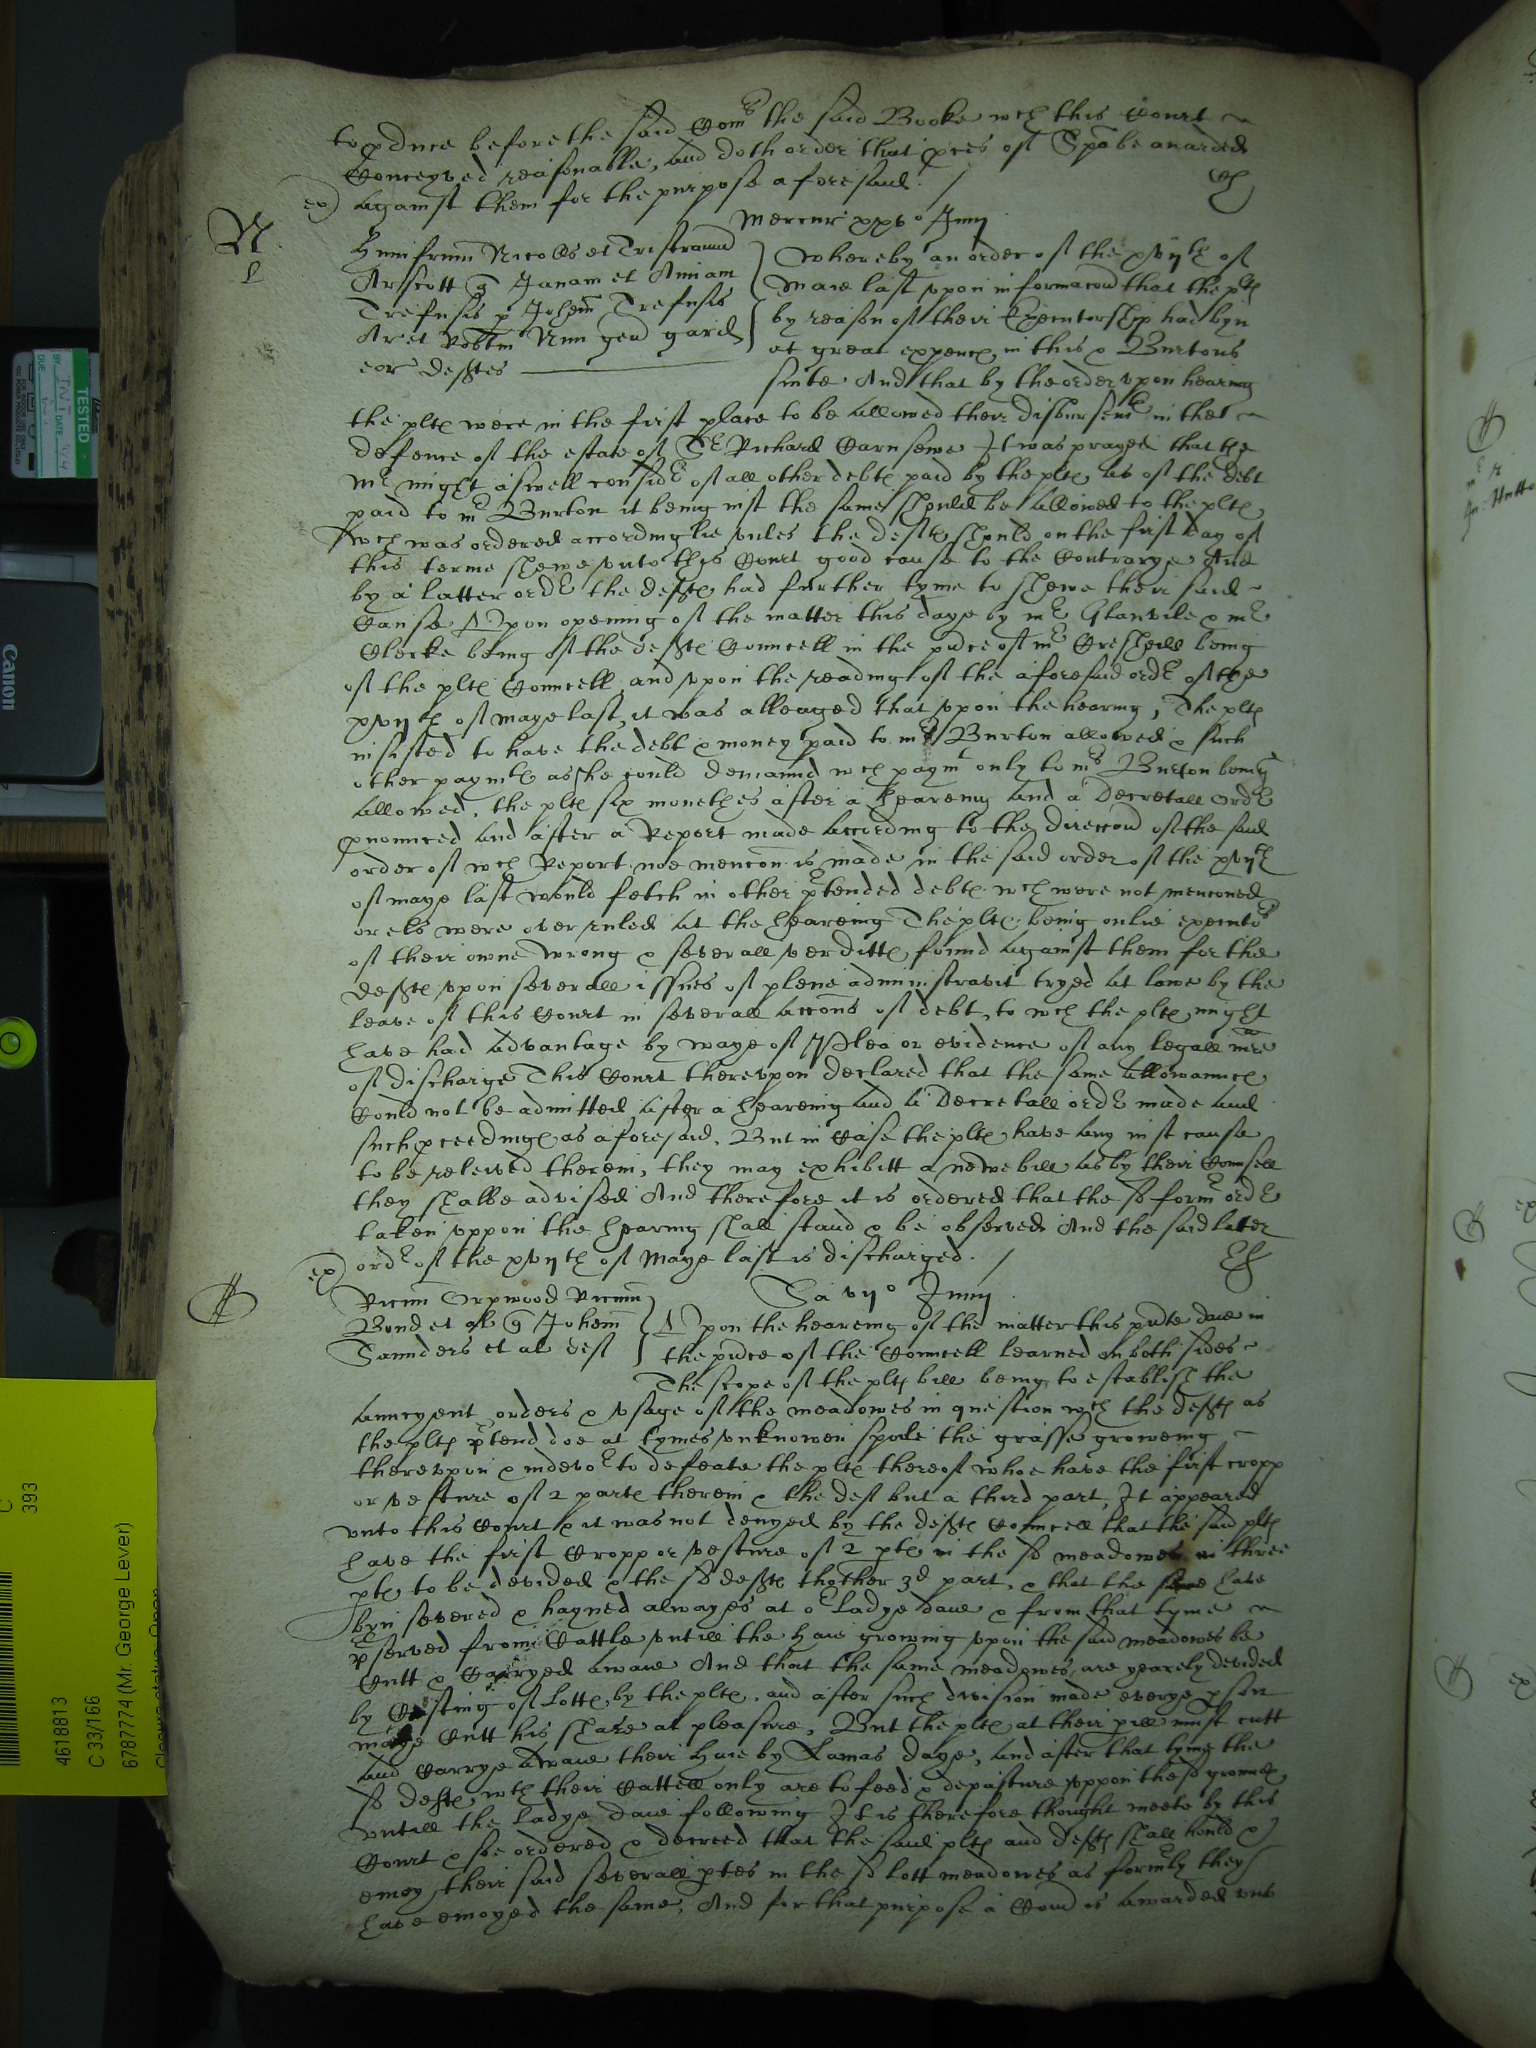 to pduce before the said Com's the said Booke wch this Court
Conceyved reasonable, and doth order that pces of Spa be awarded
ex) against them for the purpose aforesaid. /
Mercur xxv o Junij
N
Humfrum Nicolls et Tristramu
Arscott q Janam et Amiam
Trefusis p Johem Trefusis
Ar et Robtm Nun gen gard
eor defftes
Whereby an order of the xvijth of
Maie last upon informacon that the plts
by reason of their Executorship had byn
at great expence in this & Burtons
suite And that by the order upon hearing
the plts were in the first place to be allowed their disbursemts in the
defence of the estate of Sr Richard Carnsewe It was prayed that the
Mr might aswell consider of all other debts paid by the plts as of the debt
paid to mr Burton it being iust the same should be allowed to the plts
wch was ordered accordinglie unles the defts should on the first day of
this terme shewe unto this Court good cause to the Contrarye And
by a latter order the defts had further tyme to shewe their said
Cause Upon opening of the matter this daye by mr Glanvile & mr
Clerke being of the defts Councell in the pnce of mr being
of the plts Councell and upon the reading of the aforesaid order of the
xvijth of maye last, it was alleaged that upon the hearing, The plts
insisted to have the debt & money paid to mr Burton allowed & such
other paymts as she could demaund wch paymt only to mr Burton being
allowed, the plts six monethes after a heareing and a Decretall order
pnounced and after a Report made according to the direccon of the said
order of wch Report noe mencon is made in the said order of the xvijth
of maye last would fetch in other ptended debts wch were not menconed
or els were over ruled at the heareing The plts being onlie executors
of their owne wrong & severall verditts found against them for the
defts upon severall issues of plene administravit tryed at lawe by the
leave of this Court in severall accons of debt, to wch the plts might
have had advantage by waye of Plea or evidence of any legall mre
of discharge This Court thereupon declared that the same allowannces
Could not be admitted after a heareing and a Decretall order made and
such pceedings as aforesaid. But in Case the plts have any iust cause
to be releived therein, they may exhibitt a newe bill as by their Counsell
they shalbe advised And therefore it is ordered that the sd former order
taken uppon the hearing shall stand & be observed And the said later
ex) order of the xvijth of Maye last is discharged. /
Sa vijo Junij
Ricum Orpwood Ricum
Bond et al q Johem
Saunders et al deft
Upon the heareing of the matter this pnte daie in
the pnce of the Councell learned on both sides
The scope of the plts bill being to establish the
anncyent orders & usage of the meadowes in question wch the defts as
the plts ptend doe at tymes unknowen spoile the grasse groweing
thereupon & indevor to defeate the plts thereof whoe have the first cropp
or vesture of 2 parts therein & the deft but a third part, It appeared
unto this Court & it was not denyed by the defts Councell that the said plts
have the first Cropp or vesture of 2 pts in the sd meadowes in three
pts to be devided & the sd defts thother 3d part, & that the same have
byn severed & hayned alwayes at or Ladye daie & from that tyme
pserved from Cattle untill the haie growing upon the said meadowes be
Cutt & Carryed awaie And that the same meadowes are yearely devided
by Casting of Lotts by the plts, and after such division made everye pson
maye Cutt his share at pleasure, But the plts at their pill must cutt
and Carrye awaie their haie by Lamas daye, and after that tyme the
sd defts wth their Cattell only are to feed & depasture uppon the sd grounds
untill the Ladye daie following It is therefore thought meete by this
Court & soe ordered & decreed that the said plts and defts shall hould &
enioy their said severall ptes in the sd lott meadowes as formerly they
have enioyed the same, And for that purpose a Com is awarded unto
TESTED
DATE
DUE
Canon
C
393
4618813
C 33/166
6787774 (Mr. George Lever)